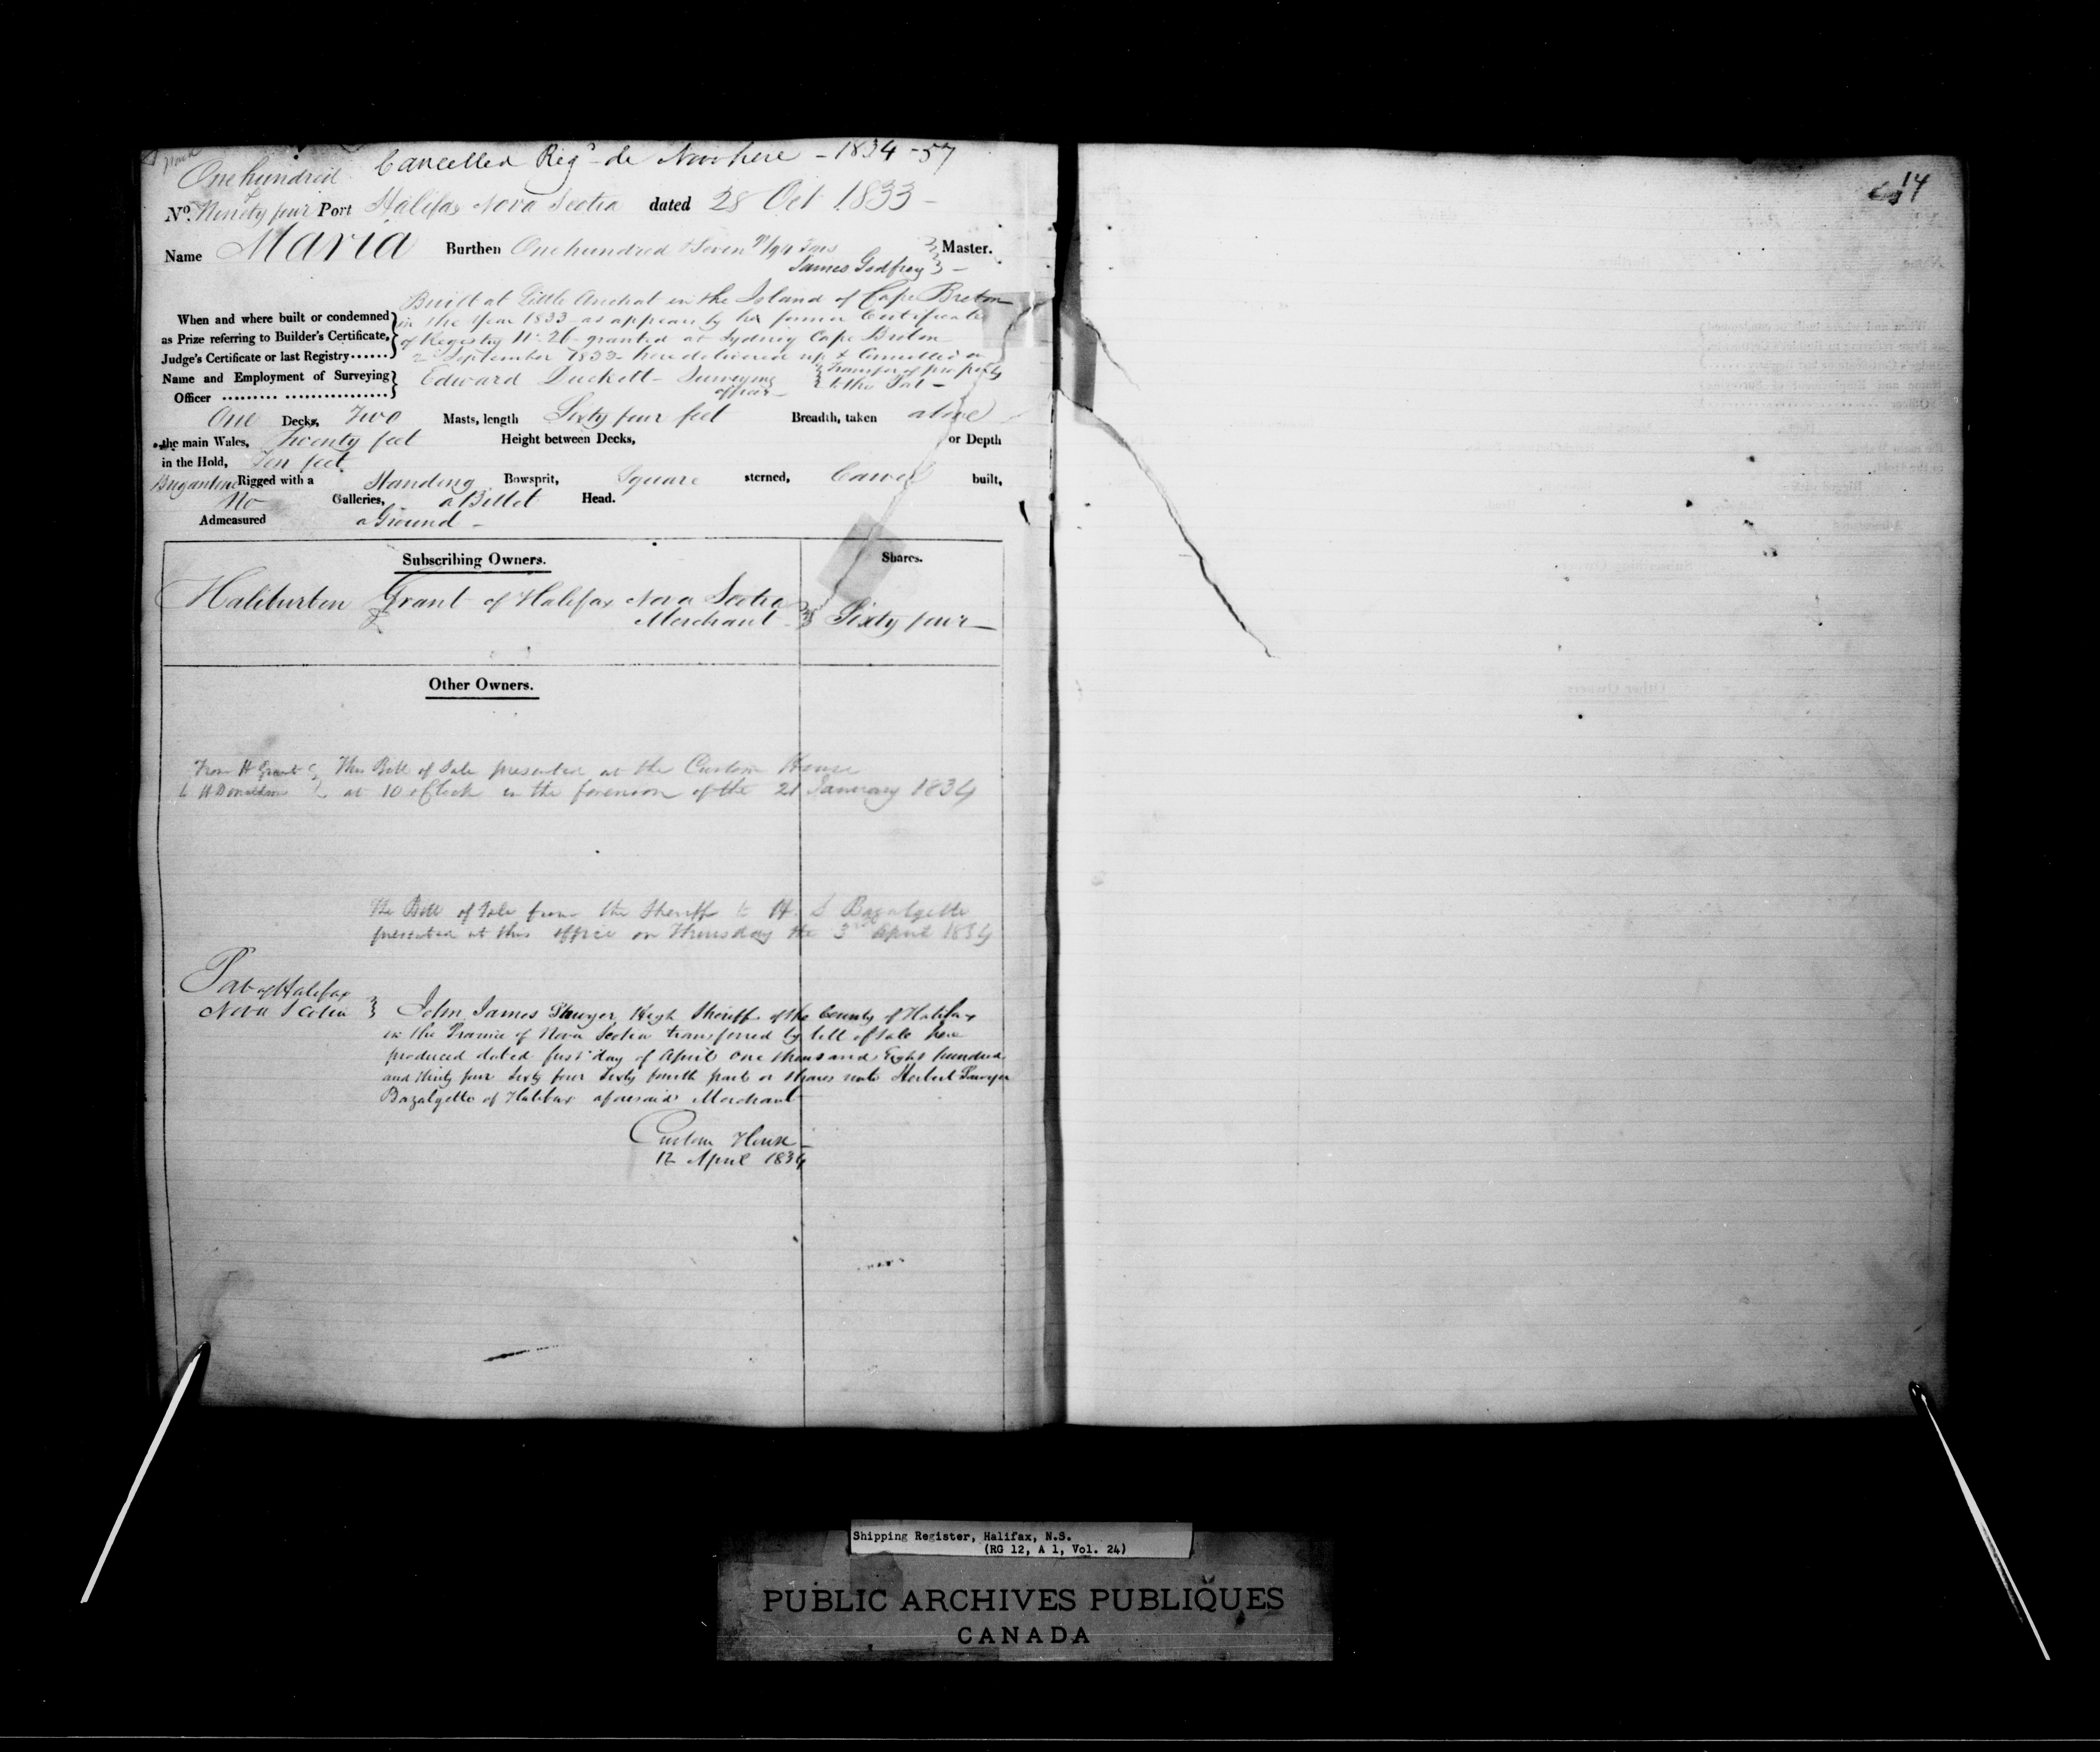 Cancelled Reg^d de Novo here - 1834 - 57
One hundred &
No. Ninety four Port Halifax Nova Scotia dated 28 Oct 1833 -
Name Maria Burthen One hundred & Seven /94 Tons Master.
James Godfrey -
Built at Little Arichat in the Island of Cape Breton
When and where built or condemned in the Year 1833 as appears by her former Certificate
as Prize referring to Builder's Certificate, of Registry No. 26 granted at Sydney Cape Breton
Judge's Certificate or last Registry...... 2^d September 1833 here delivered up & Cancelled on
Transfer of property
Name and Employment of Surveying Edward Duckett - Surveying to this Port -
Officer ......... ................ officer -
One Decks, Two Masts, length Sixty four feet Breadth, taken above
the main Wales, Twenty feet Height between Decks, or Depth
in the Hold, Ten feet
Brigantine Rigged with a Standing Bowsprit, Square sterned, Carvel built,
No Galleries, a Billet Head.
Admeasured a Ground -
Subscribing Owners. Shares.
Haliburton Grant of Halifax Nova Scotia
Merchant Sixty four -
Other Owners.
From H Grant This Bill of Sale presented at the Custom House
to H Donaldson at 10 o'Clock in the forenoon of the 21 January 1834
The Bill of Sale from the Sheriff to H. S Bazalgette
presented at this office on Thursday the 3rd April 1834
Port of Halifax
Nova Scotia John James Sawyer High Sheriff of the County of Halifax
in the Province of Nova Scotia transferred by bill of sale here
produced dated first day of April One thousand Eight hundred
and thirty four Sixty four Sixty fourth part or shares unto Herbert Sawyer
Bazalgette of Halifax aforesaid Merchant
Custom House -
12 April 1834
14
Shipping Register, Halifax, N.S.
(RG 12, A 1, Vol. 24)
PUBLIC ARCHIVES PUBLIQUES
CANADA